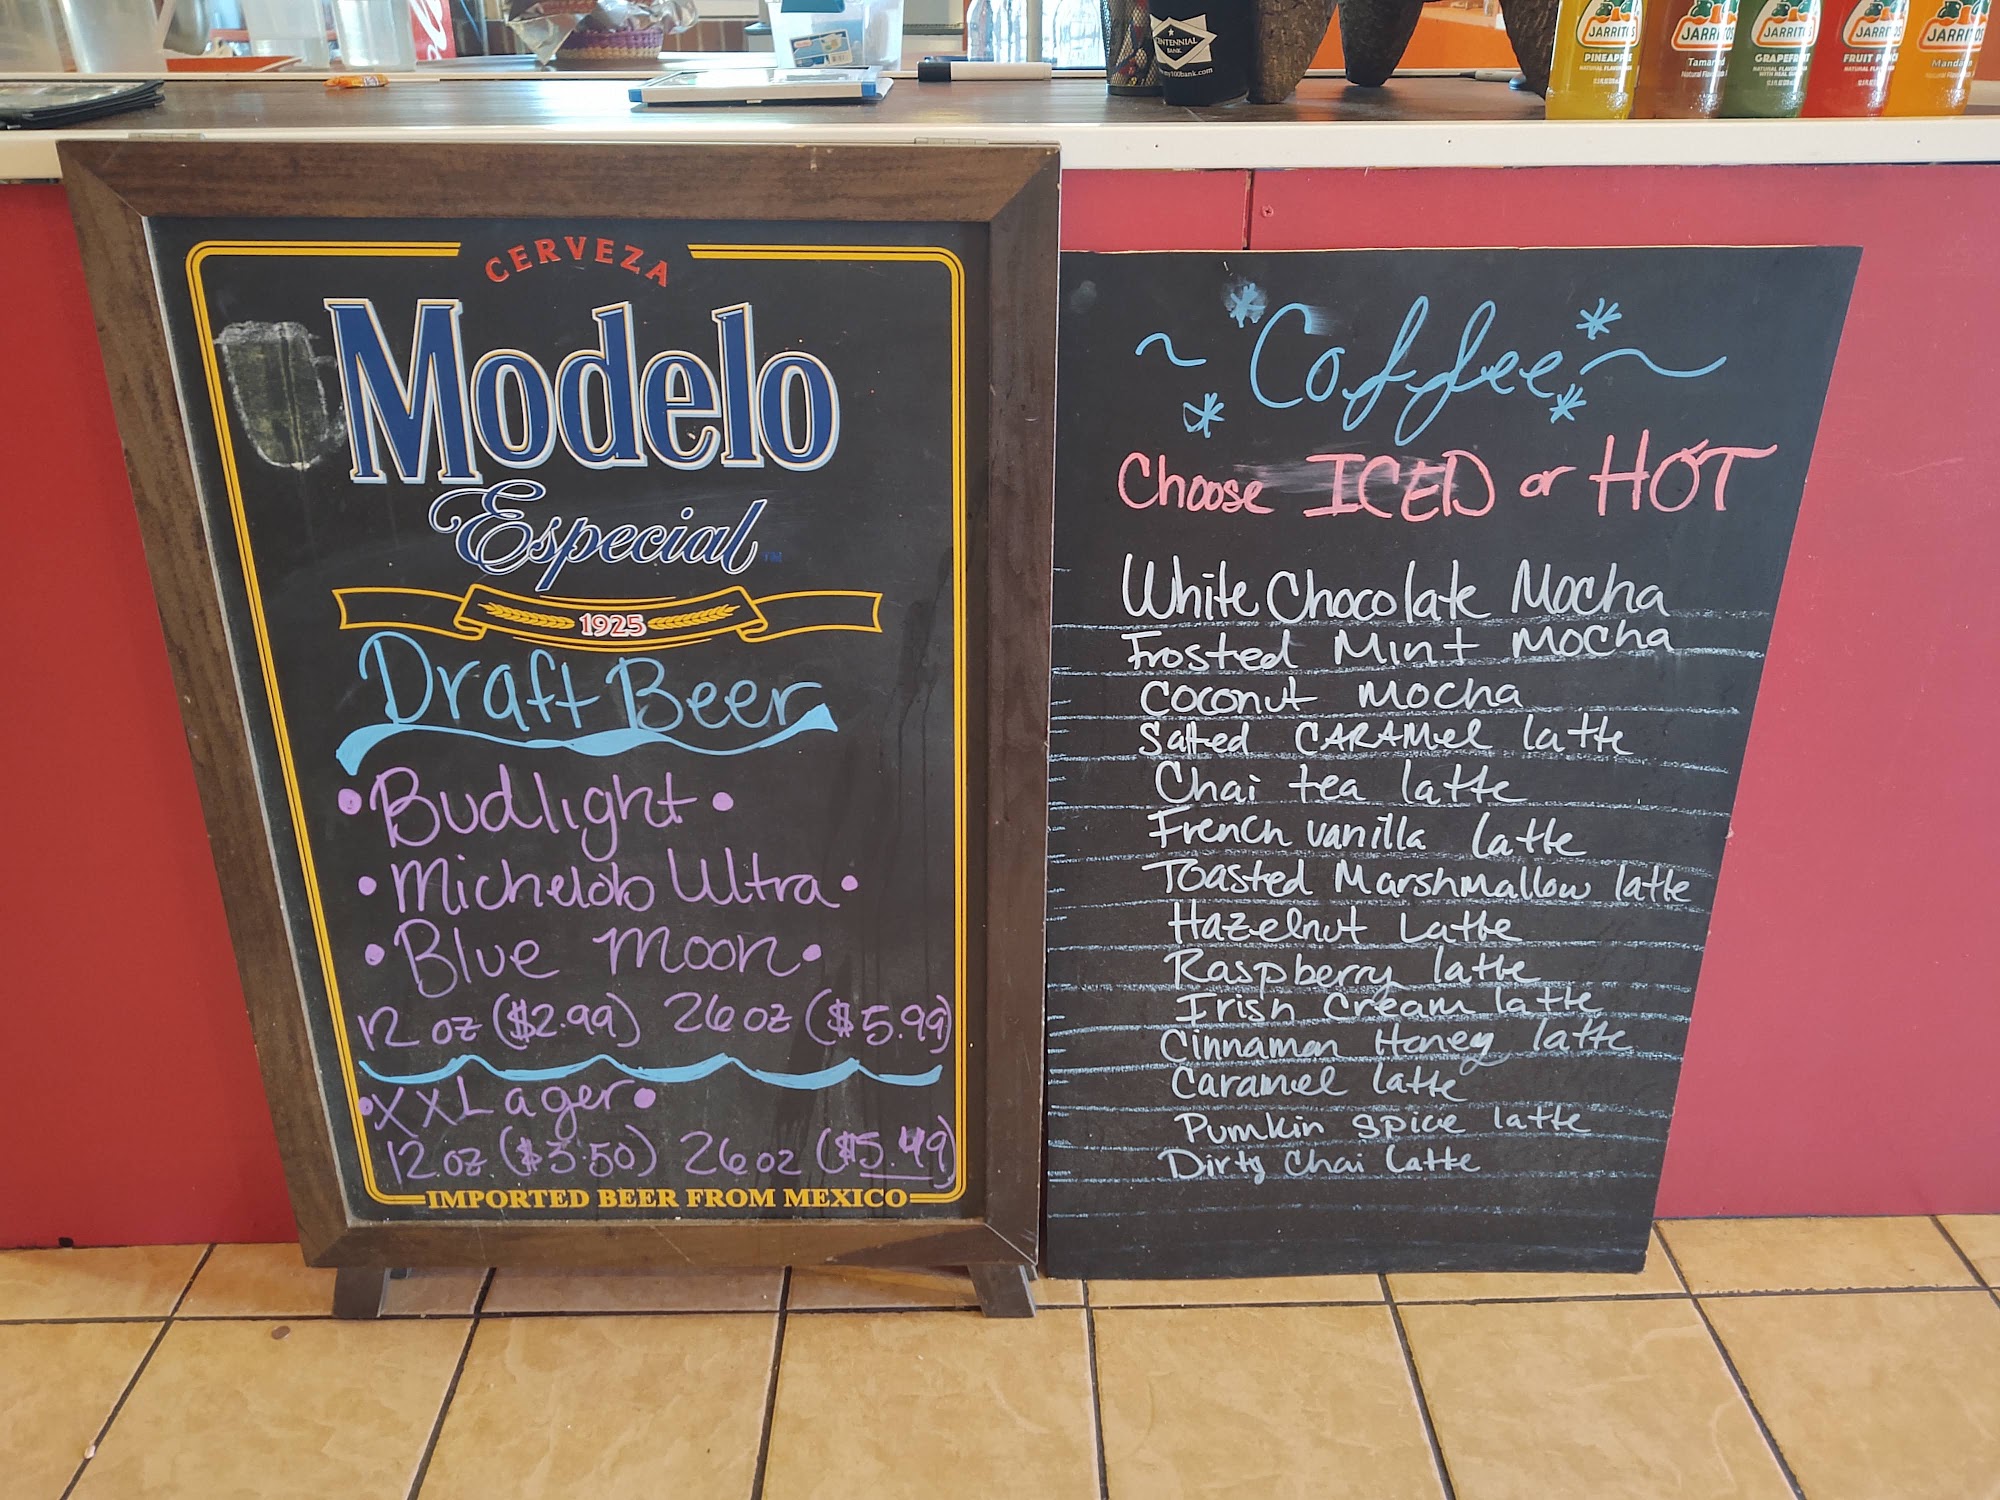 CENTENNIAL
BANK
www.my100bank.com
JARRITOS
PINEAPPLE
JARRITOS
Tamarind
JARRITOS
GRAPEFRUIT
JARRITOS
FRUIT PUNCH
JARRITOS
Mandarin
CERVEZA
Modelo
Especial
1925
Draft Beer
• Budlight •
• Michelob Ultra •
• Blue Moon •
12 oz ($2.99) 26 oz ($5.99)
• XX Lager •
12 oz ($3.50) 26 oz ($5.49)
IMPORTED BEER FROM MEXICO
~ *Coffee* ~
Choose ICED or HOT
White Chocolate Mocha
Frosted Mint Mocha
Coconut Mocha
Salted CARAMel latte
Chai tea latte
French vanilla latte
Toasted Marshmallow latte
Hazelnut Latte
Raspberry latte
Irish Cream latte
Cinnamon Honey latte
Caramel latte
Pumkin spice latte
Dirty Chai Latte